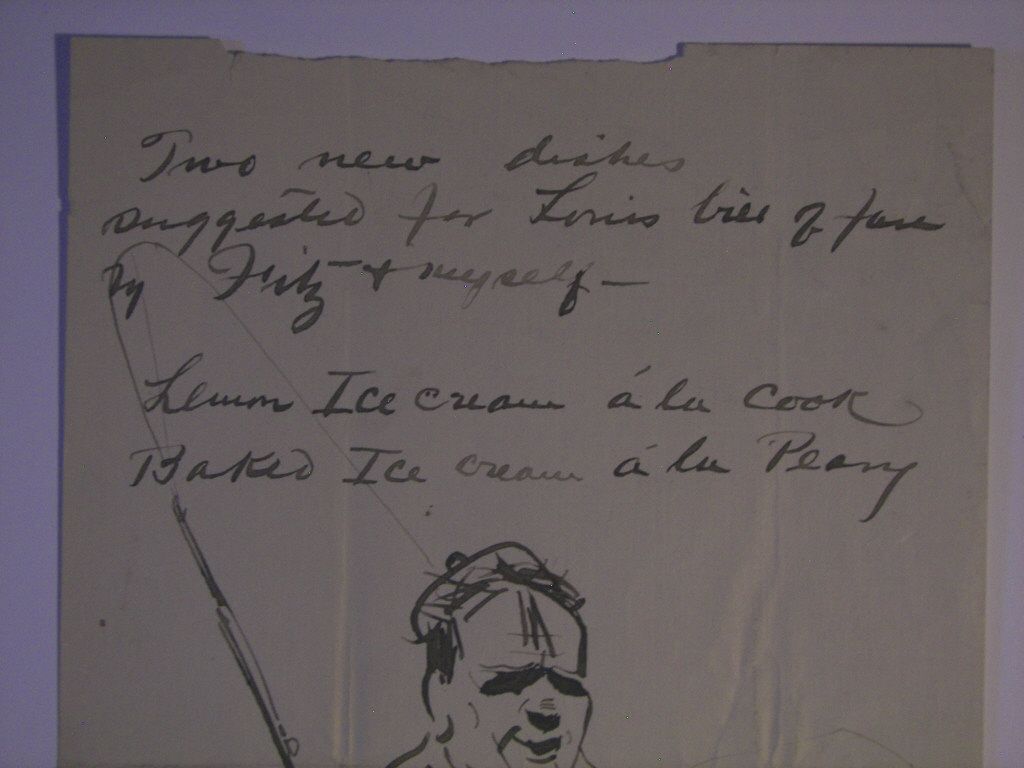 Two new dishes
suggested for Louis bill of fare
by Fritz & myself —
Lemon Ice cream á la Cook
Baked Ice cream á la Peary